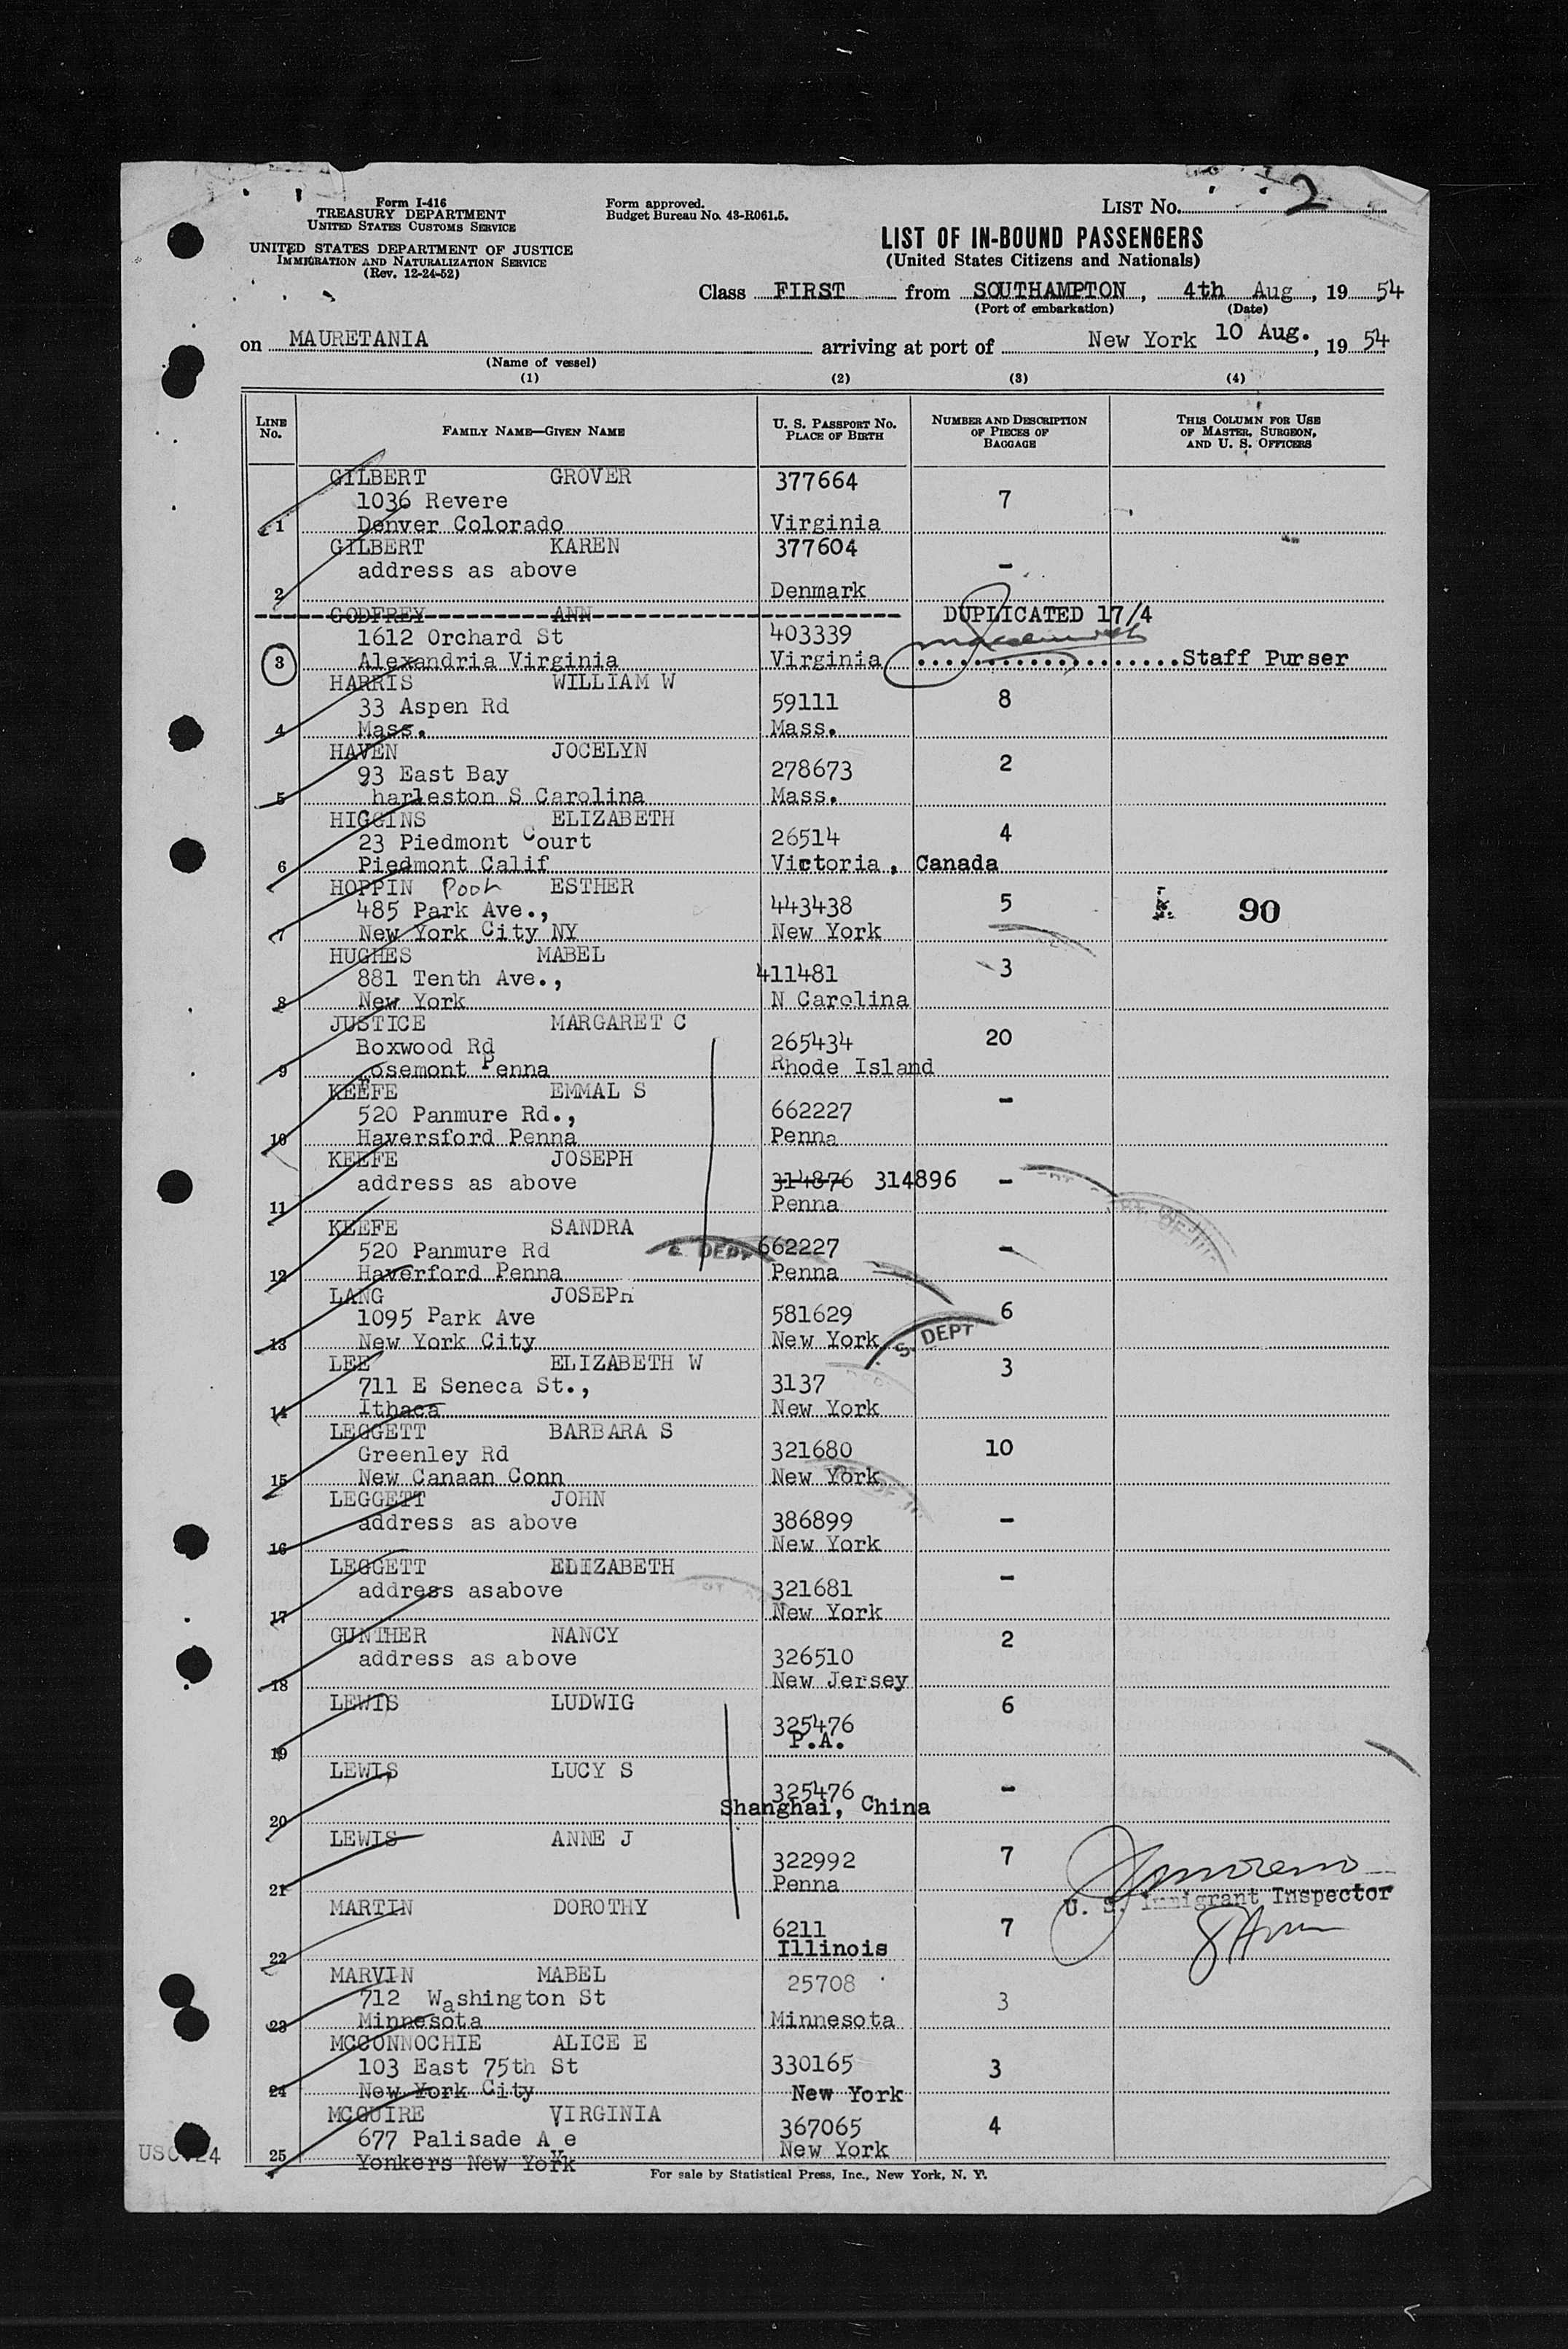 Form I-416
TREASURY DEPARTMENT
UNITED STATES CUSTOMS SERVICE
UNITED STATES DEPARTMENT OF JUSTICE
IMMIGRATION AND NATURALIZATION SERVICE
(Rev. 12-24-52)
Form approved.
Budget Bureau No. 43-R061.5.
LIST No. 2
LIST OF IN-BOUND PASSENGERS
(United States Citizens and Nationals)
Class FIRST from SOUTHAMPTON, 4th Aug, 19 54
(Port of embarkation) (Date)
on MAURETANIA arriving at port of New York 10 Aug., 19 54
(Name of vessel)
(1) (2) (3) (4)
LINE No. FAMILY NAME—GIVEN NAME U. S. PASSPORT No. PLACE OF BIRTH NUMBER AND DESCRIPTION OF PIECES OF BAGGAGE THIS COLUMN FOR USE OF MASTER, SURGEON, AND U. S. OFFICERS
GILBERT GROVER 377664
1036 Revere 7
1 Denver Colorado Virginia
GILBERT KAREN 377604
address as above -
2 Denmark
GODFREY ANN DUPLICATED 17/4
1612 Orchard St 403339
3 Alexandria Virginia Virginia ....................Staff Purser
HARRIS WILLIAM W
33 Aspen Rd 59111 8
4 Mass. Mass.
HAVEN JOCELYN
93 East Bay 278673 2
5 harleston S Carolina Mass.
HIGGINS ELIZABETH
23 Piedmont Court 26514 4
6 Piedmont Calif Victoria, Canada
HOPPIN Pooh ESTHER
485 Park Ave., 443438 5 90
7 New York City NY New York
HUGHES MABEL
881 Tenth Ave., 411481 3
8 New York N Carolina
JUSTICE MARGARET C
Boxwood Rd 265434 20
9 Rosemont Penna Rhode Island
KEEFE EMMAL S
520 Panmure Rd., 662227 -
10 Haversford Penna Penna
KEEFE JOSEPH
address as above 314876 314896 -
11 Penna
KEEFE SANDRA
520 Panmure Rd 662227 -
12 Haverford Penna Penna
S. DEPT
LANG JOSEPH
1095 Park Ave 581629 6
13 New York City New York
S. DEPT
LEE ELIZABETH W
711 E Seneca St., 3137 3
14 Ithaca New York
LEGGETT BARBARA S
Greenley Rd 321680 10
15 New Canaan Conn New York
LEGGETT JOHN
address as above 386899 -
16 New York
LEGGETT ELIZABETH
address asabove 321681 -
17 New York
GUNTHER NANCY
address as above 326510 2
18 New Jersey
LEWIS LUDWIG 6
325476
19 P.A.
LEWIS LUCY S
325476 -
20 Shanghai, China
LEWIS ANNE J
322992 7
21 Penna
U. S. Immigrant Inspector
MARTIN DOROTHY
6211 7
22 Illinois
MARVIN MABEL 25708
712 Washington St 3
23 Minnesota Minnesota
MCCONNOCHIE ALICE E
103 East 75th St 330165 3
24 New York City New York
MCGUIRE VIRGINIA
677 Palisade Ave 367065 4
25 Yonkers New York New York
For sale by Statistical Press, Inc., New York, N. Y.